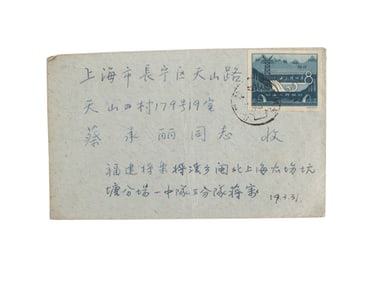 上海市長宁区天山路
天山四村179号19室
蔡承丽同志 收
福建将乐将溪乡闽北上海农场坑
塘分场一中隊三分隊蒋寄
8